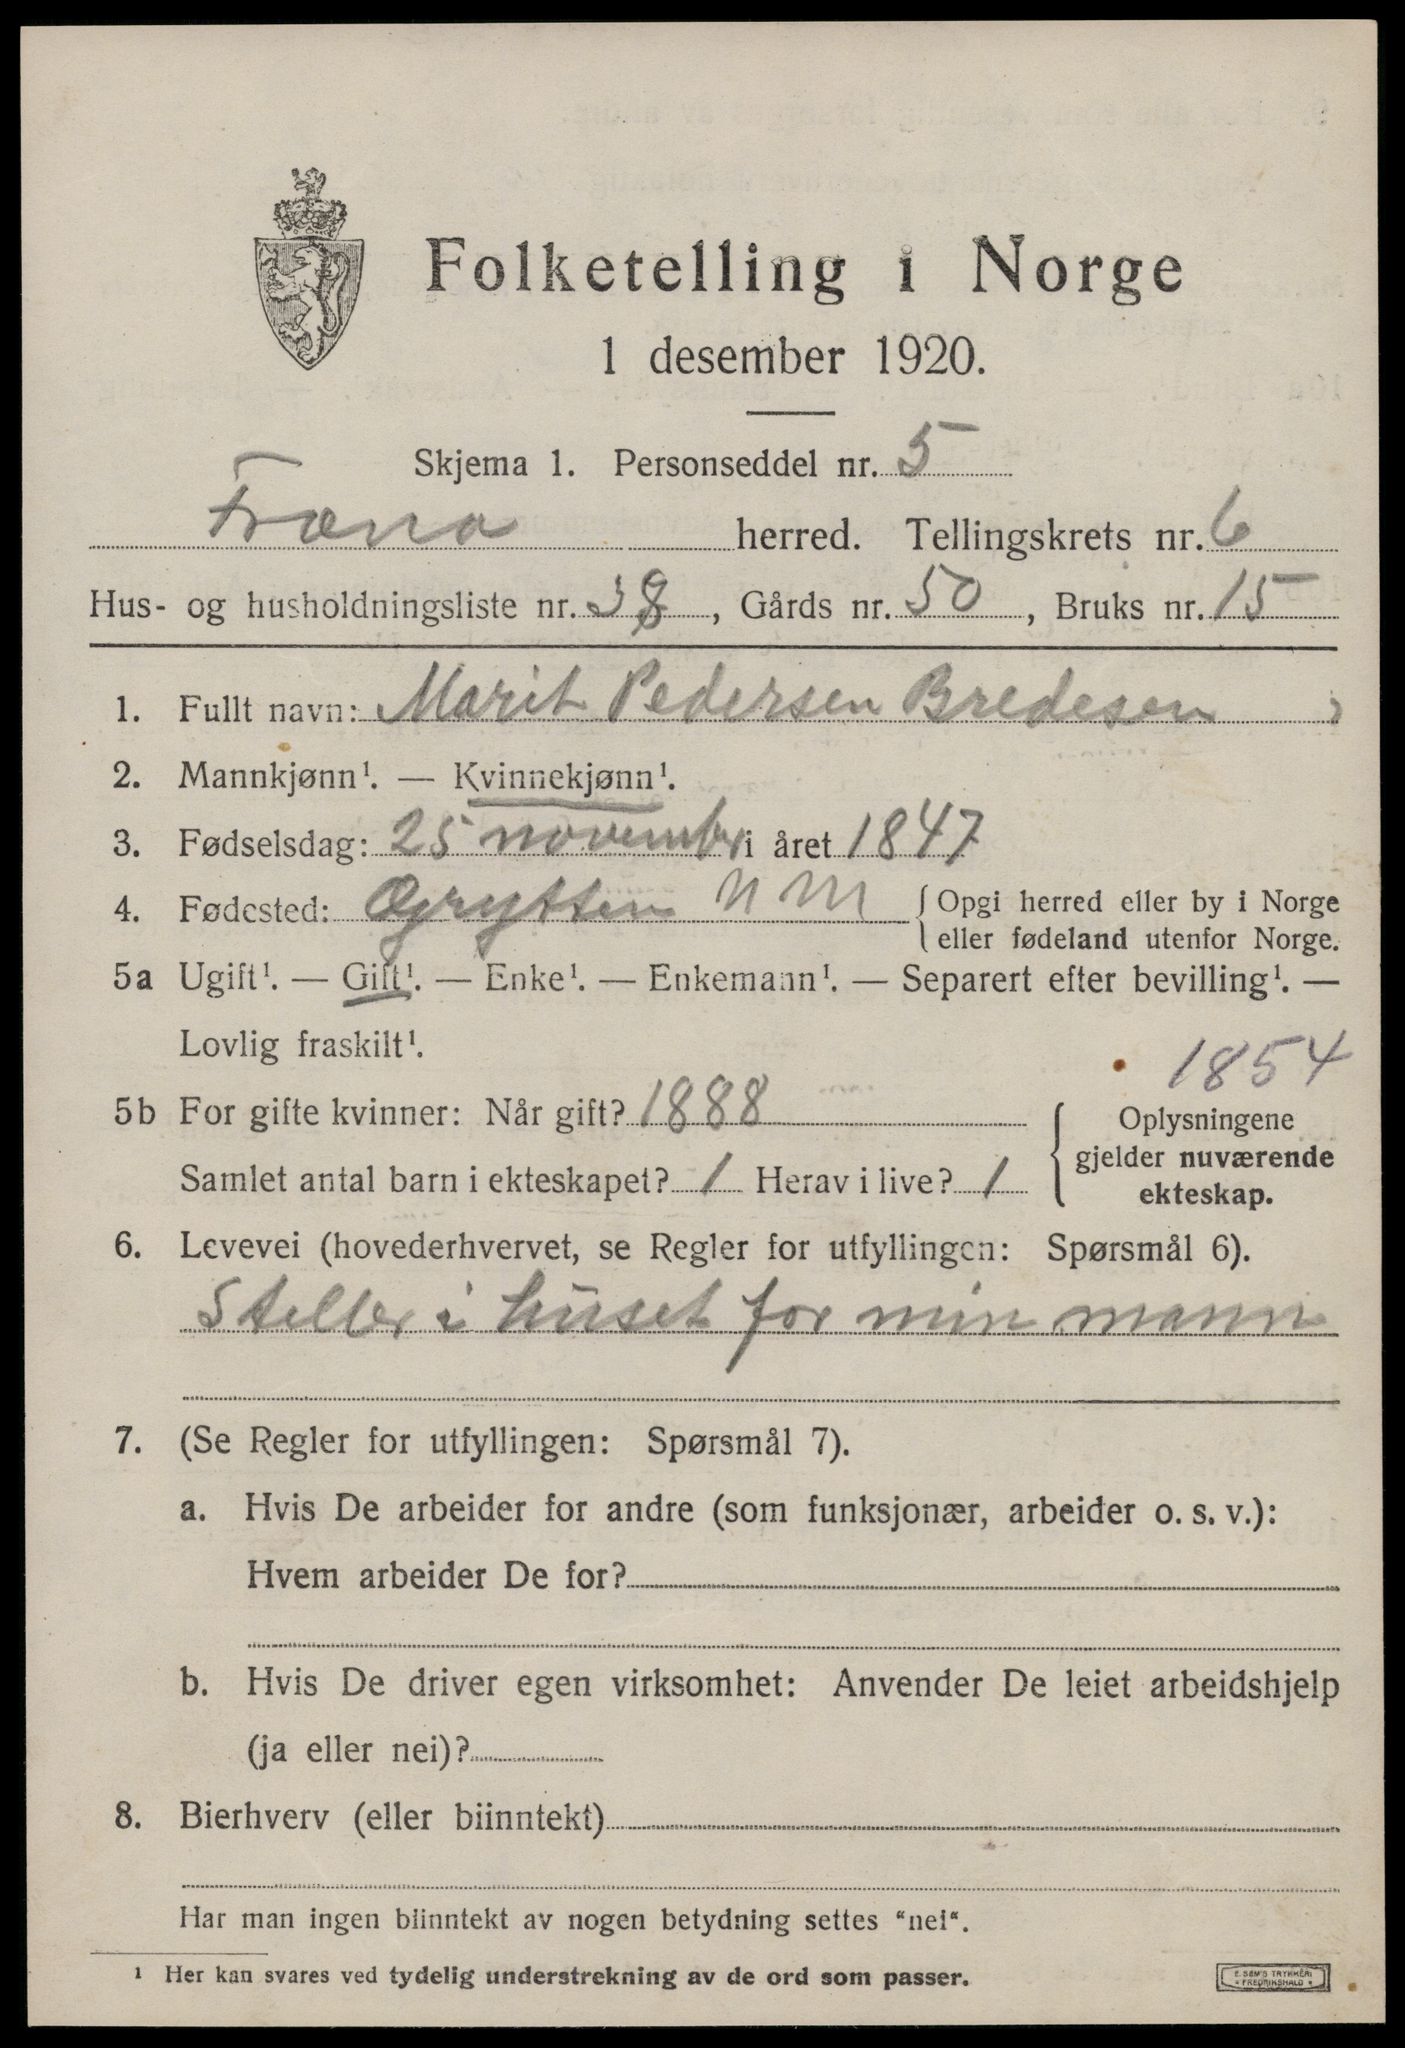 Folketelling i Norge
1 desember 1920.
Skjema 1. Personseddel nr. 5
Fræna herred. Tellingskrets nr. 6
Hus- og husholdningsliste nr. 38, Gårds nr. 50, Bruks nr. 15
1. Fullt navn: Marit Pedersen Bredesen
2. Mannkjønn¹. — Kvinnekjønn¹.
3. Fødselsdag: 25 november i året 1847
4. Fødested: Grytten N M { Opgi herred eller by i Norge
eller fødeland utenfor Norge.
5a Ugift¹. — Gift¹. — Enke¹. — Enkemann¹. — Separert efter bevilling¹. —
Lovlig fraskilt¹.
1854
5b For gifte kvinner: Når gift? 1888
Samlet antal barn i ekteskapet? 1 Herav i live? 1
{ Oplysningene
gjelder nuværende
ekteskap.
6. Levevei (hovederhvervet, se Regler for utfyllingen: Spørsmål 6).
Steller i huset for min mann
7. (Se Regler for utfyllingen: Spørsmål 7).
a. Hvis De arbeider for andre (som funksjonær, arbeider o. s. v.):
Hvem arbeider De for?
b. Hvis De driver egen virksomhet: Anvender De leiet arbeidshjelp
(ja eller nei)?
8. Bierhverv (eller biinntekt)
Har man ingen biinntekt av nogen betydning settes “nei“.
¹ Her kan svares ved tydelig understrekning av de ord som passer.
E. SEM'S TRYKKERI
• FREDRIKSHALD •